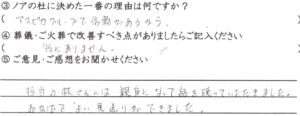 ③ノアの杜に決めた一番の理由は何ですか？
(アスピカグループで信頼があるから。
④葬儀・ご火葬で改善すべき点がありましたらご記入ください
(特にありません。
⑤ご意見・ご感想をお聞かせください
担当の林さんには親身になって話を聴いていただきました。
おかげでよい見送りができました。